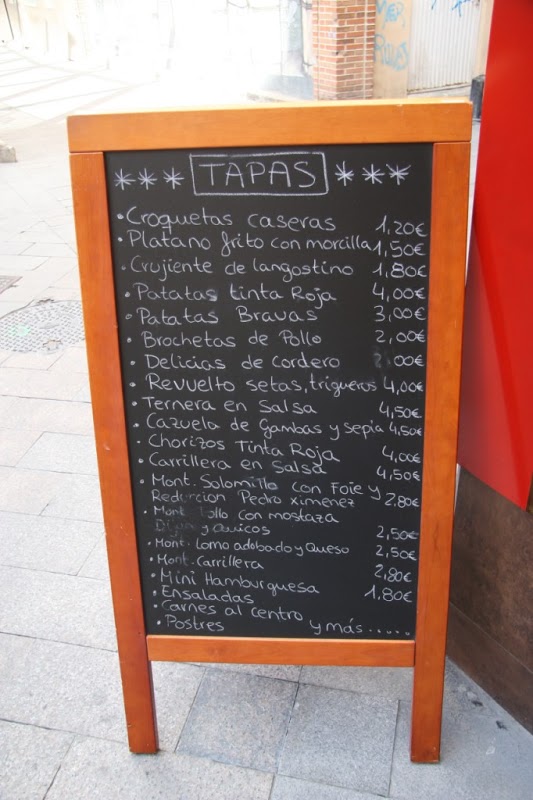 *** TAPAS ***
• Croquetas caseras 1,20€
• Platano frito con morcilla 1,50€
• Crujiente de langostino 1,80€
• Patatas tinta Roja 4,00€
• Patatas Bravas 3,00€
• Brochetas de Pollo 2,00€
• Delicias de Cordero ,00€
• Revuelto setas, trigueros 4,00€
• Ternera en Salsa 4,50€
• Cazuela de Gambas y sepia 4,50€
• Chorizos Tinta Roja 4,00€
• Carrillera en Salsa 4,50€
• Mont. Solomillo con Foie y
Reduccion Pedro ximenez 2,80€
• Mont. Pollo con mostaza
Dijon y 2,50€
• Mont. Lomo adobado y Queso 2,50€
• Mont. Carrillera 2,80€
• Mini Hamburguesa 1,80€
• Ensaladas
• Carnes al centro
• Postres y más......